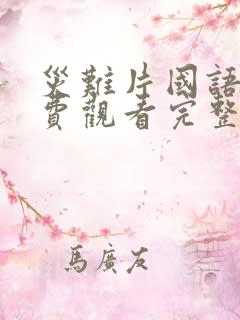 災難片國語
費觀看完整
馬廣友